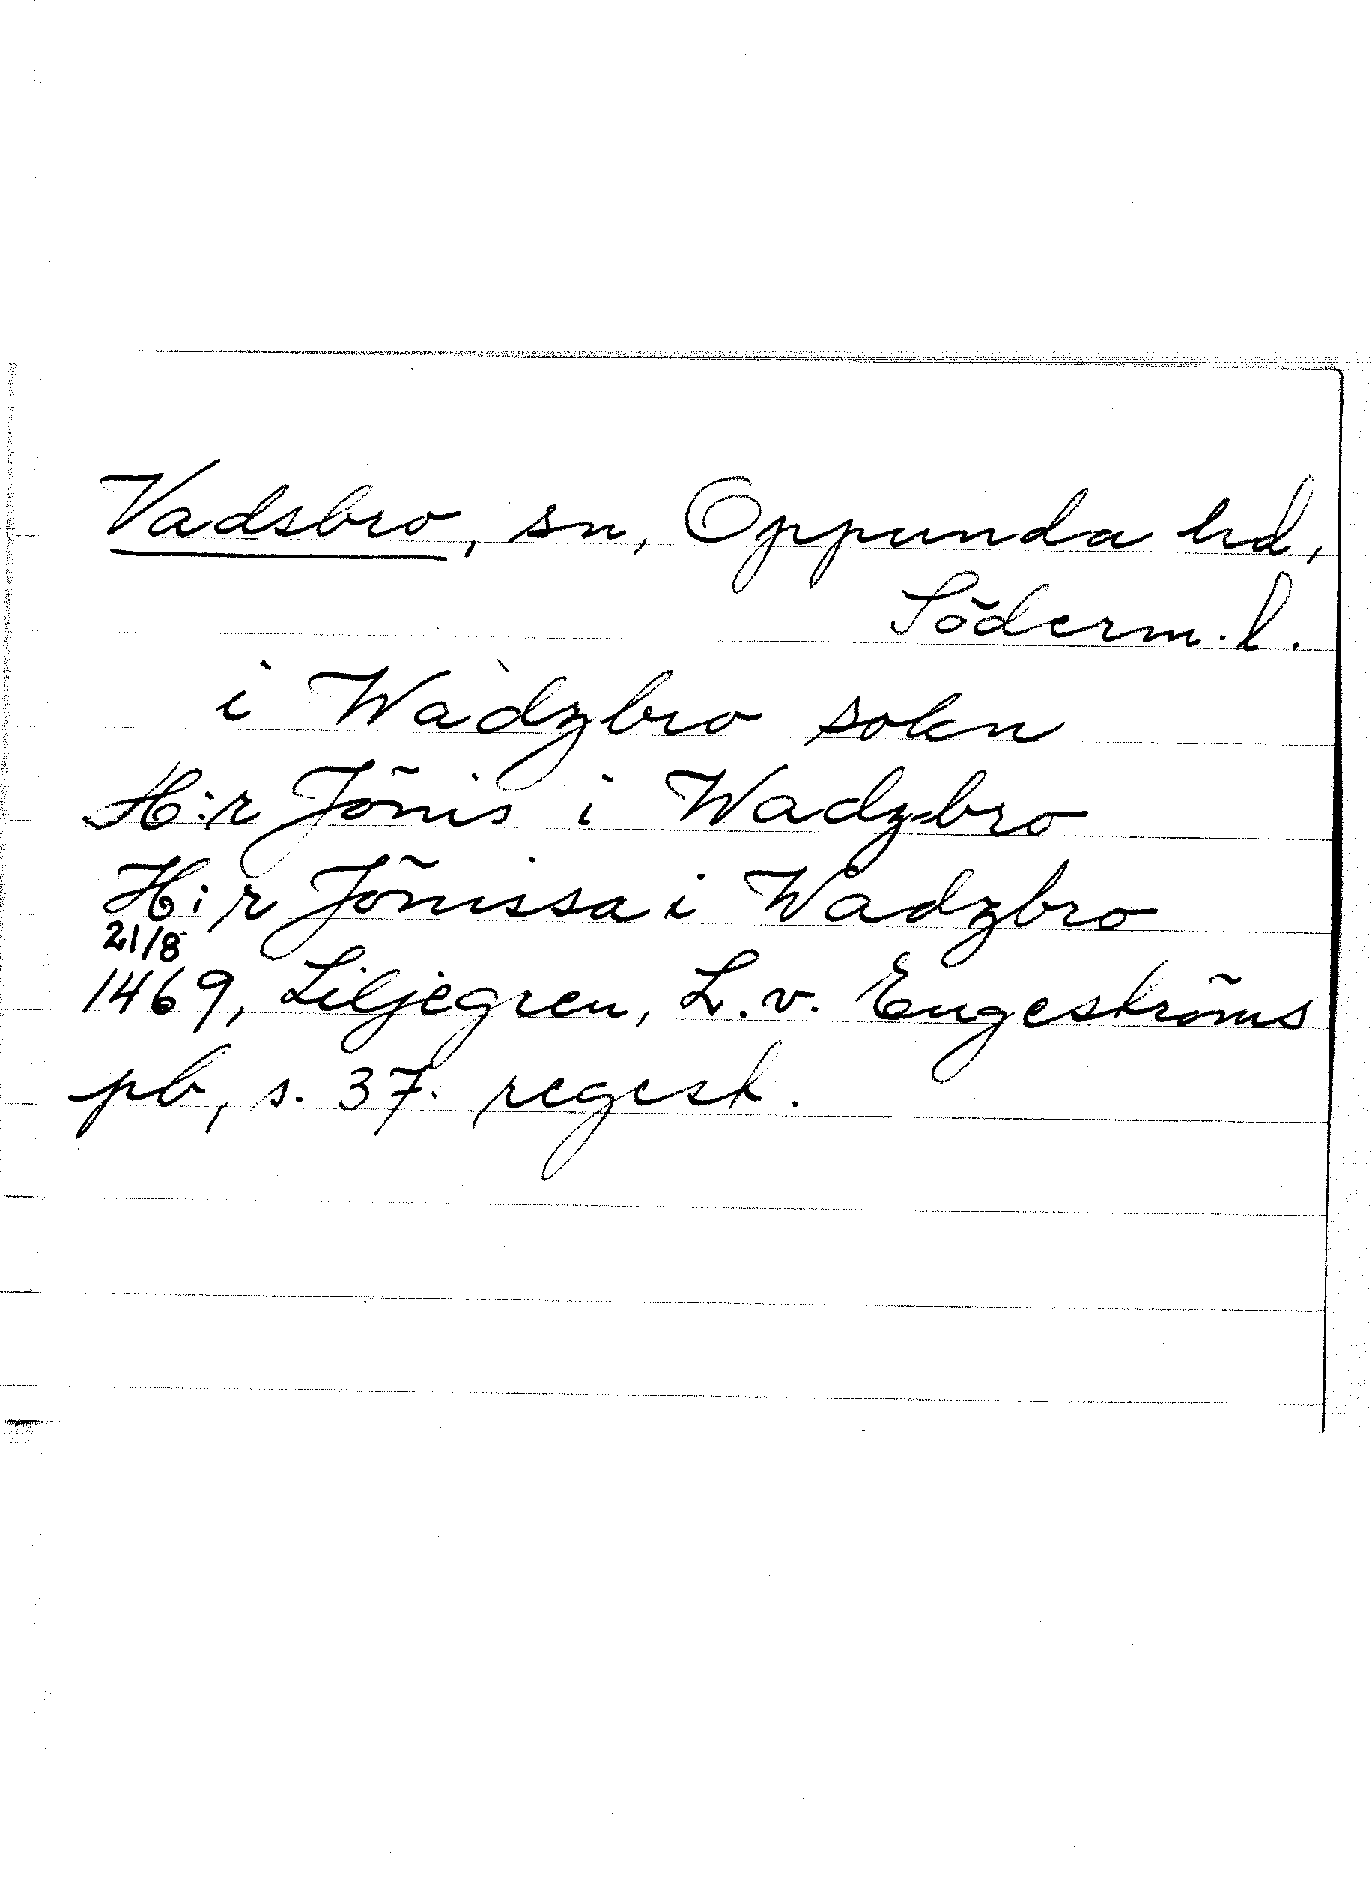 Vadsbro, sn, Oppunda hd,
Söderm. l.
i Wadzbro sokn
H:r Jönis i Wadzbro
H:r Jönissa i Wadzbro
21/8
1469, Liljegren, L. v. Engeströms
pb, s. 37. regest.